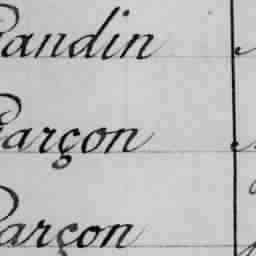 Gandin
Garçon
Garçon